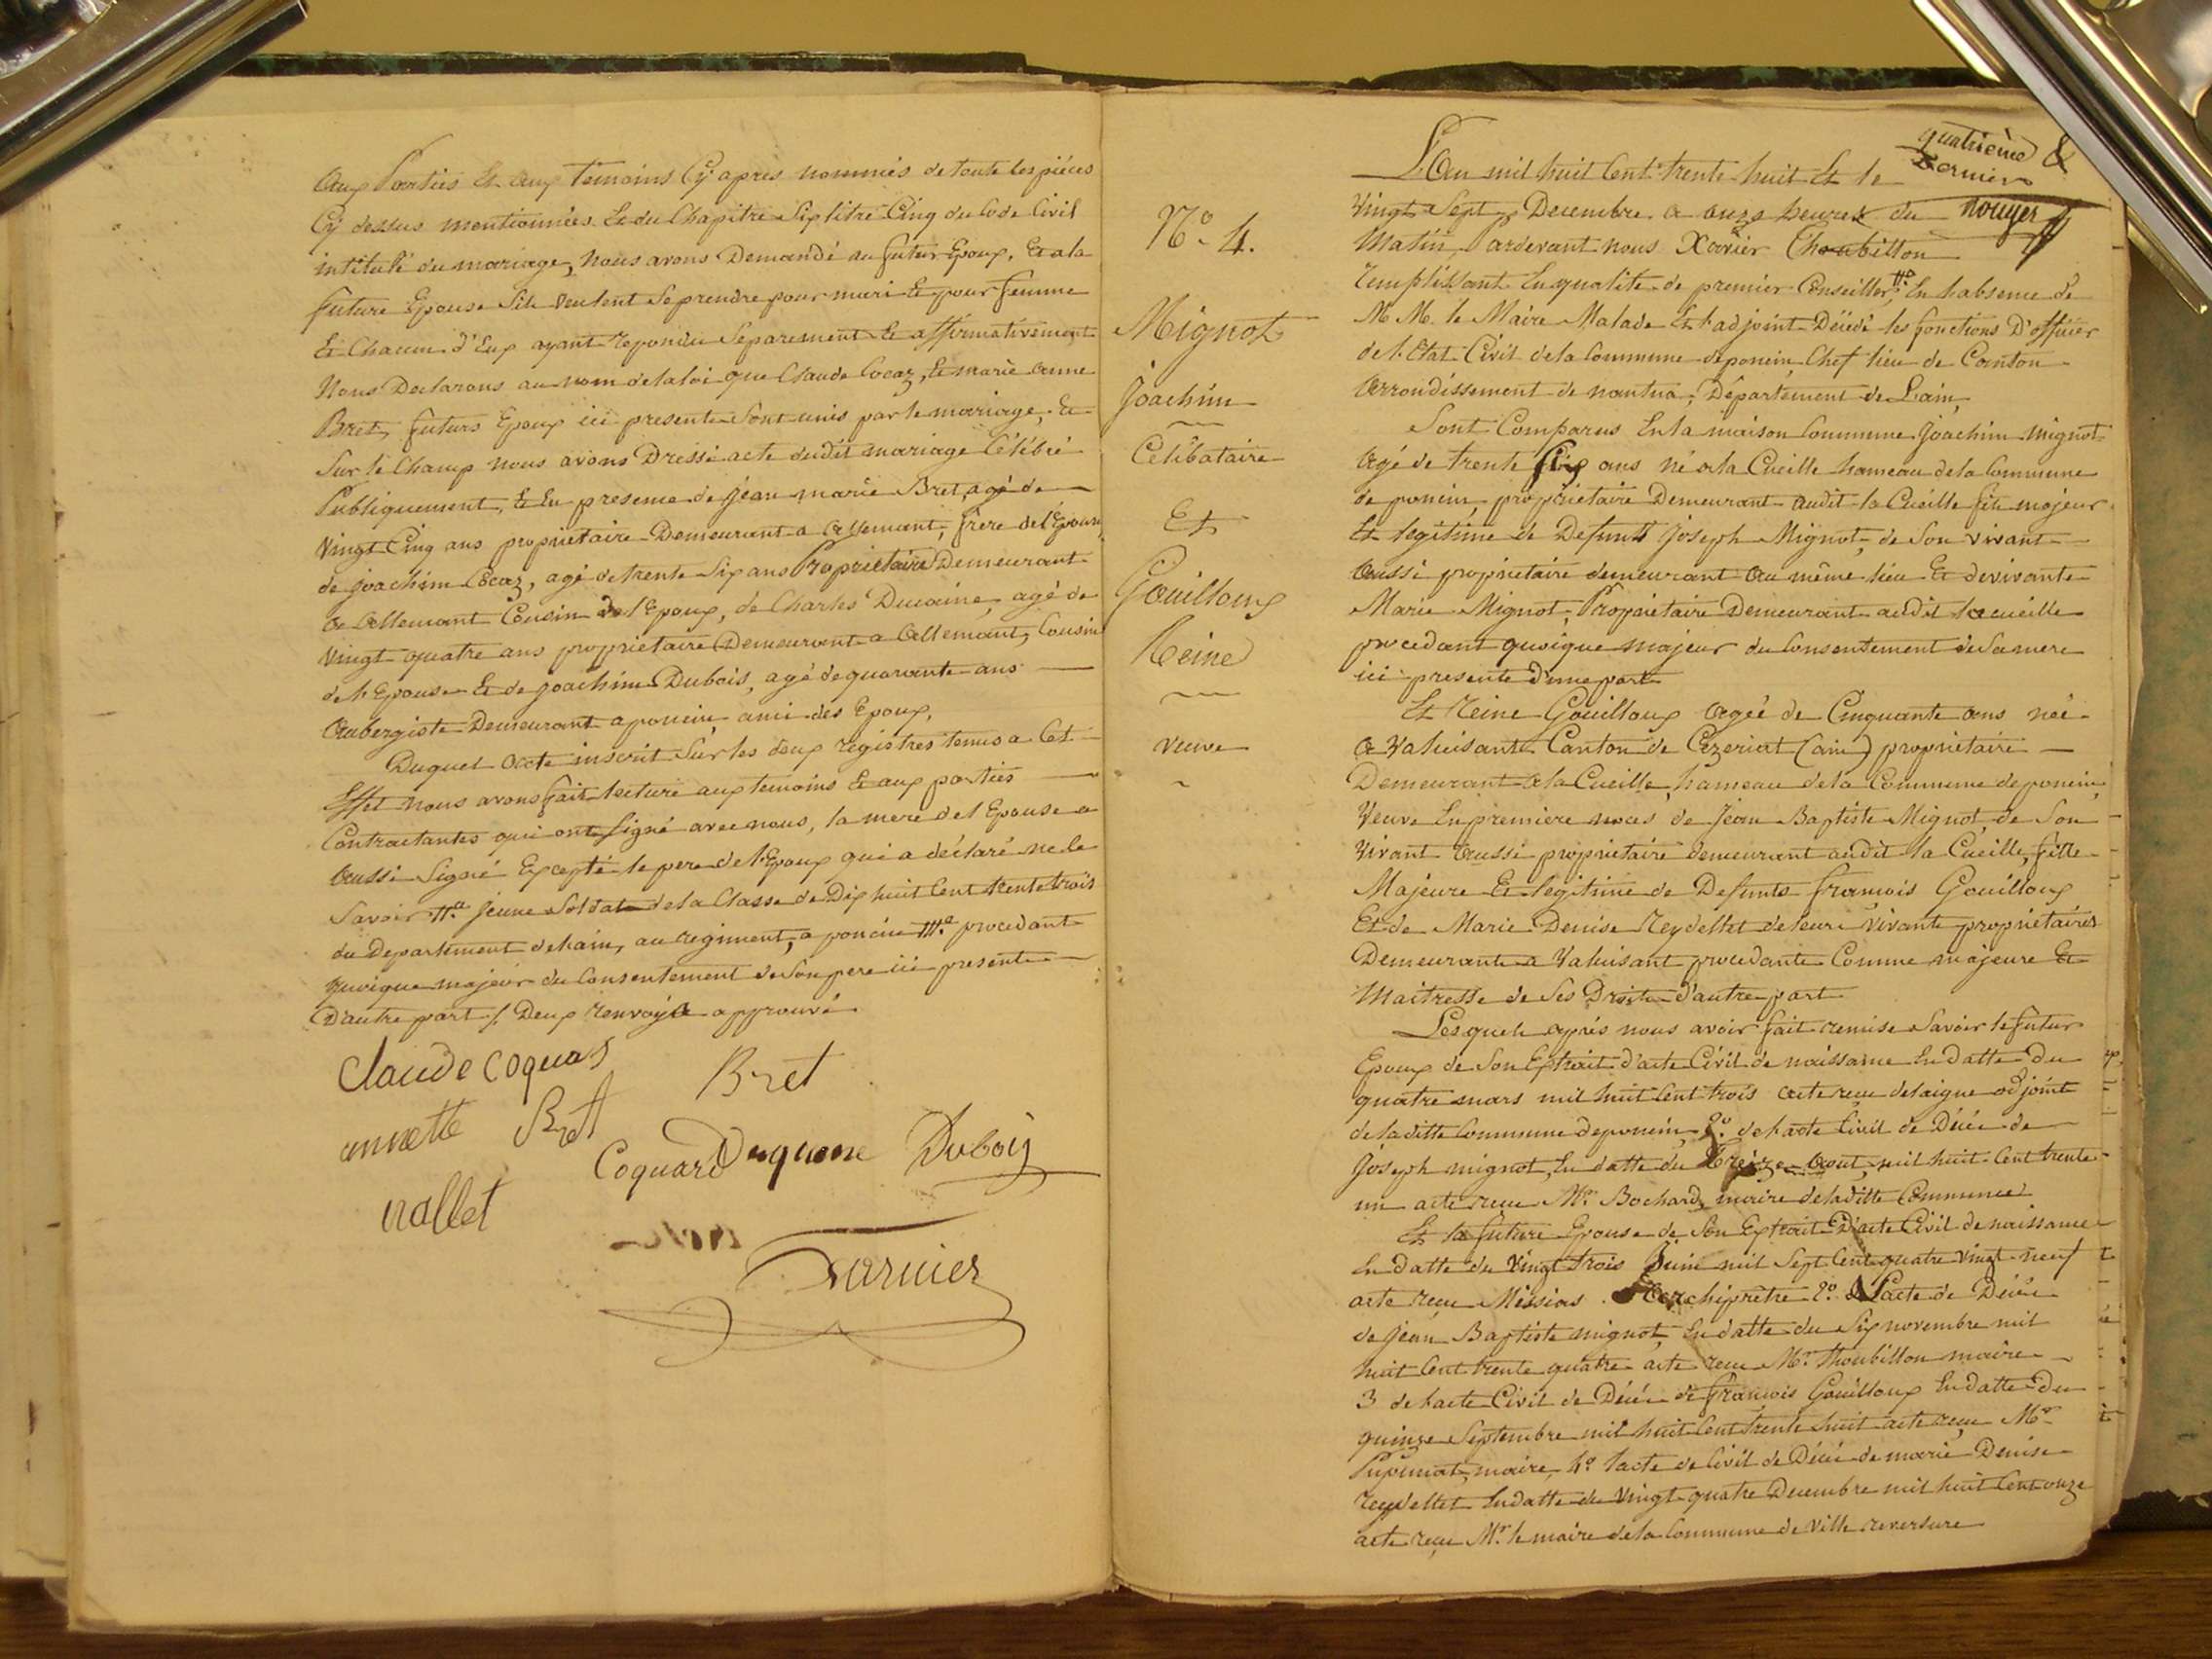 aux Parties Et aux temoins Cy apres nommés de toute les pièces
Cy dessus mentionnées Et du Chapitre Six titre Cinq du Code Civil
intitulé du mariage, nous avons Demandé au futur Epoux, Et a la
future Epouse Sils veulent Se prendre pour mari Et pour femme
Et Chacun d'Eux ayant repondu Separement Et affirmativement
Nous Declarons au nom de la loi que Claude Cocaz, Et marie anne
Bret, futurs Epoux ici presents Sont unis par le mariage, Et
Sur le Champ nous avons Dressé acte dudit mariage Célébré
Publiquement, Et En presence de jean marie Bret, agé de
Vingt Cinq ans propriétaire Demeurant a Allemant, frère de l'Epouse,
de joachim Cocaz, agé de trente Six ans Propriétaire Demeurant
a Allemant Cousin de l'Epoux, de Charles Ducaine, agé de
Vingt quatre ans propriétaire Demeurant a Allemant, Cousin
de l'Epouse Et de joachim Dubois, agé de quarante ans
Aubergiste Demeurant a poncin, ami des Epoux,
Duquel Acte inscrit Sur les deux registres tenus a Cet
Effet nous avons fait lecture aux temoins Et aux parties
Contractantes qui ont Signé avec nous, la mere de l'Epouse a
aussi Signé Excepté le pere de l'Epoux qui a déclaré ne le
Savoir jeune Soldat de la Classe de Dix huit Cent trente trois
du Departement de l'ain, au regiment, a poncin procedant
quoique majeur du Consentement de Son pere ici present
D'autre part /. Deux renvoys approuvé
Claude Coquas
Bret
annette Bret
Coquard Duquene Dubois
vallet
Darnier
quatrième &
Dernier
Rouyer
L'an mil huit Cent trente huit Et le
Vingt Sept Decembre a onze heures du
Matin, Pardevant nous Xavier Thoubillon
remplissant En qualité de premier Conseiller, En l'absence de
M M. le Maire Malade Et l'adjoint Décédé les fonctions D'officier
de l'Etat Civil de la Commune de poncin, Chef lieu de Canton
Arrondissement de nantua, Département de L'ain,
Sont Comparus En la maison Commune joachim mignot
Agé de trente Six ans né a la Cueille hameau de la Commune
de poncin, propriétaire Demeurant audit la Cueille fils majeur
Et legitime de Defunt joseph Mignot, de Son vivant
aussi propriétaire demeurant au même lieu Et de vivante
Marie Mignot, Propriétaire Demeurant audit la cueille
procedant quoique majeur du Consentement de Sa mere
ici presente d'une part
Et Reine Gouilloux Agée de Cinquante ans née
a Valuisant Canton de Cezeriat (ain) propriétaire
Demeurant a la Cueille, hameau de la Commune de poncin,
Veuve En premiere noces de jean Baptiste Mignot de Son
Vivant aussi propriétaire demeurant audit la Cueille, fille
Majeure Et legitime de Defunts francois Gouilloux
Et de Marie Denise Reydellet de leurs vivants propriétaires
Demeurants a Valuisant procedante Comme majeure Et
Maitresse de Ses Droits d'autre part
Lesquels après nous avoir fait remise Savoir le futur
Epoux de Son Extrait d'acte Civil de naissance En datte du
quatre mars mil huit Cent trois acte recu delaigue adjoint
de la ditte Commune de poncin, 2º de l'acte Civil de Décés de
joseph mignot, En datte du Treize Aout, mil huit Cent trente
un acte recu Mr Bochard, maire de laditte Commune
Et la future Epouse de Son Extrait D'acte Civil de naissance
En datte du Vingt trois juin mil Sept Cent quatre vingt neuf
acte recu Archiprêtre 2º L'acte de Décés
de jean Baptiste mignot, En datte du Six novembre mil
huit Cent trente quatre acte recu Mr Thoubillon maire
3 de l'acte Civil de Décés de francois Gouilloux En datte du
quinze Septembre mil huit Cent trente huit acte recu Mr
maire, 4º l'acte de Civil de Décés de marie Denise
reydellet En datte du Vingt quatre Decembre mil huit Cent onze
acte recu Mr le maire de la Commune de Ville reversure
Nº 4.
Mignot
Joachim
Célibataire
Et
Gouilloux
Reine
veuve